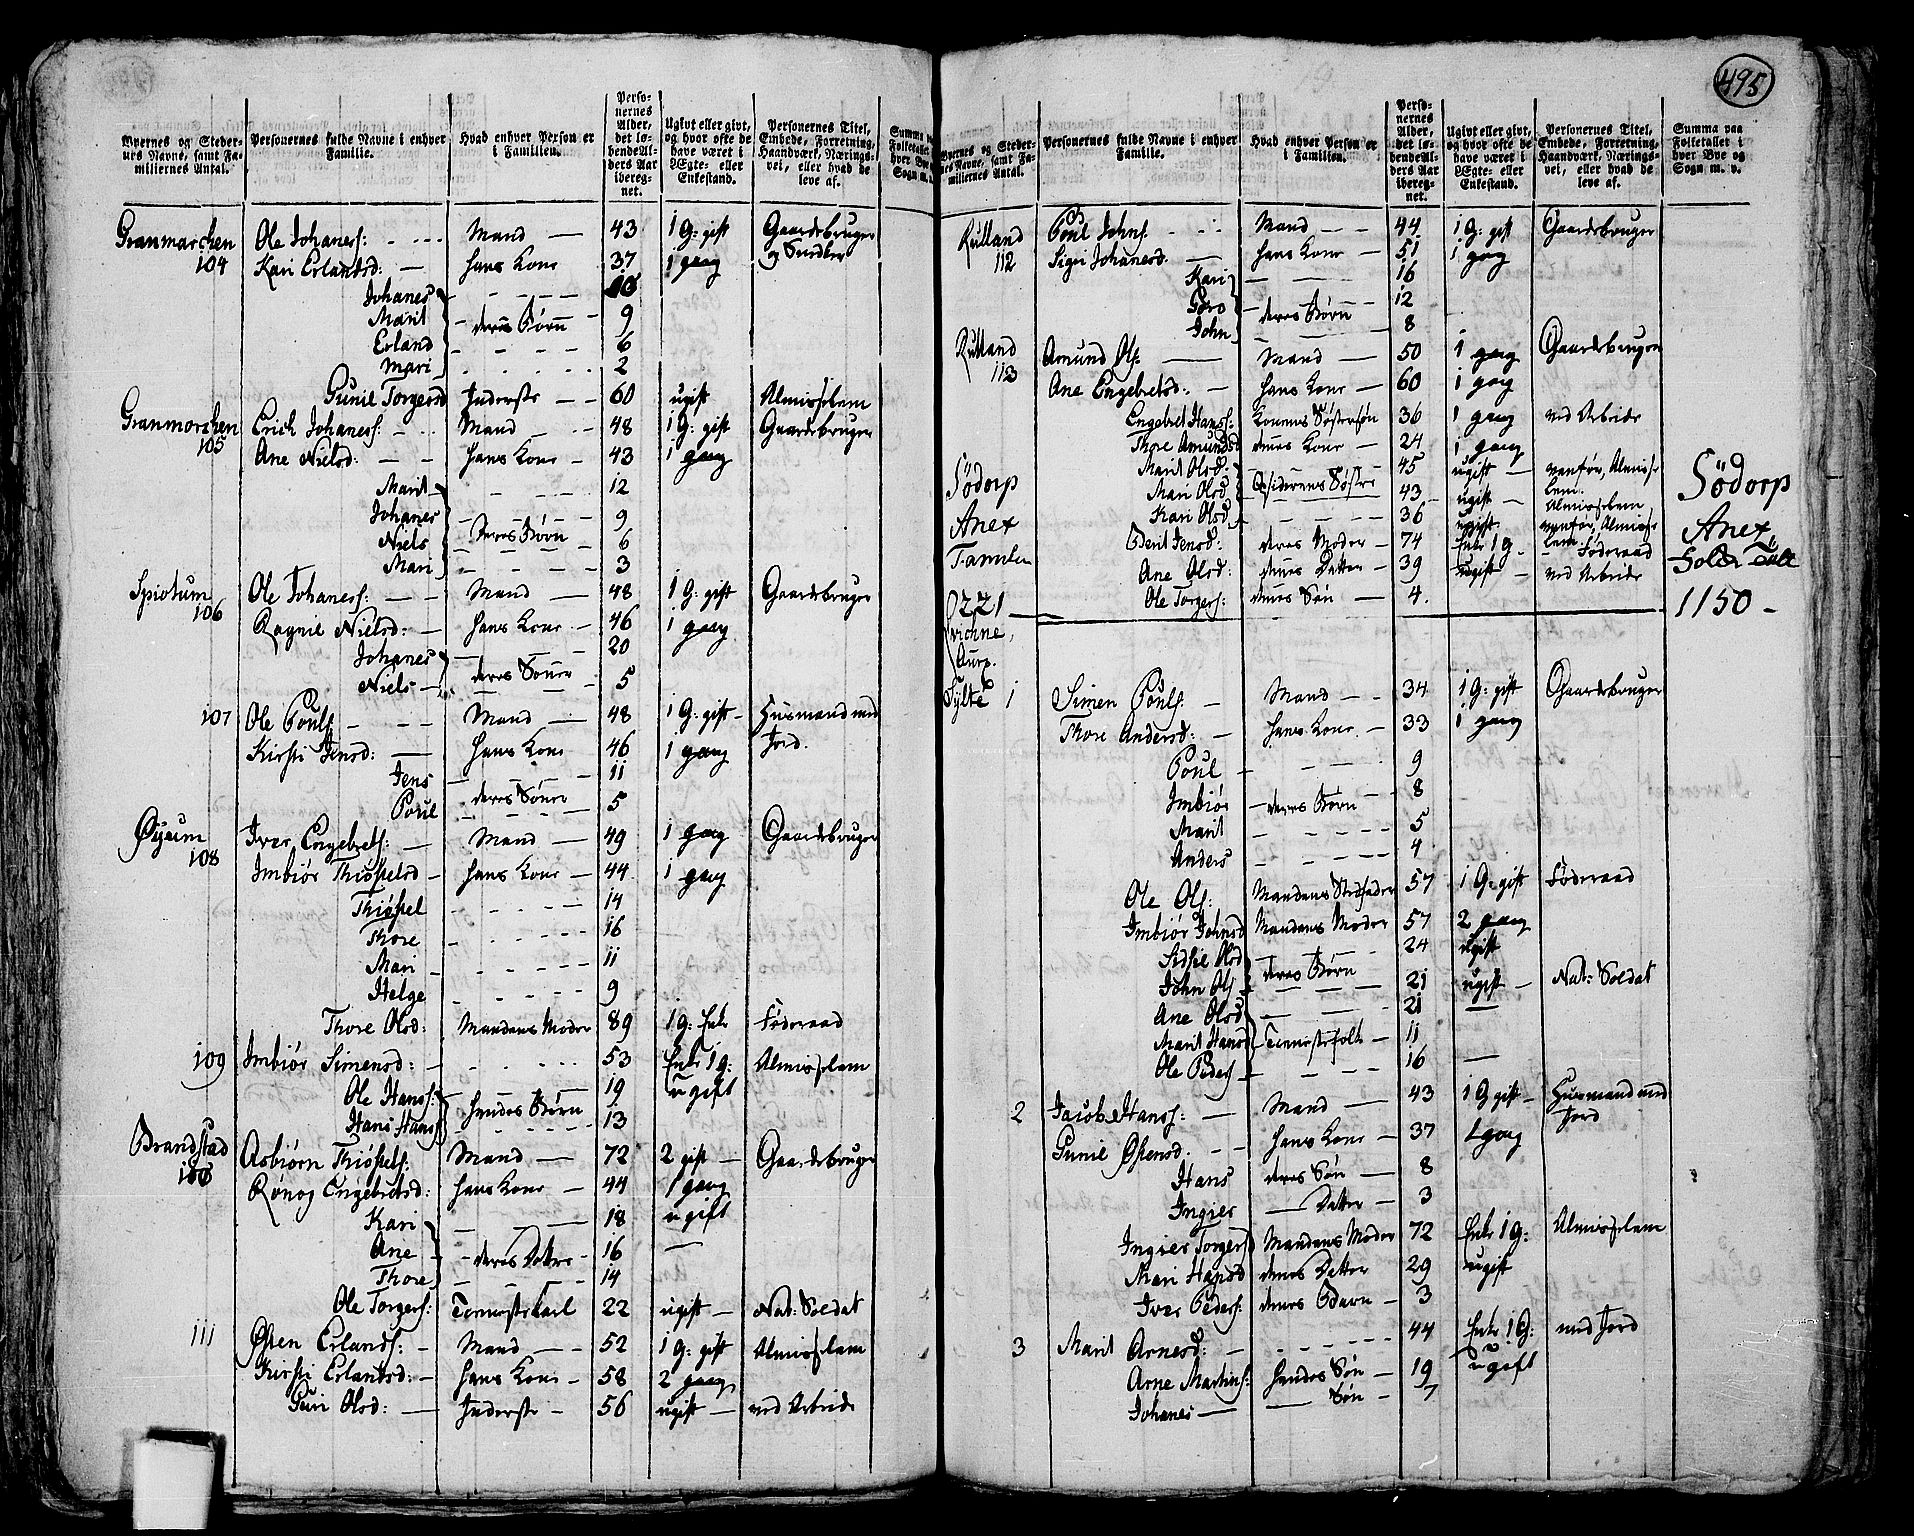 495
Byernes og Stedernes Navne, samt Familiernes Antal. | Personernes fulde Navne i enhver Familie. | Hvad enhver Person er i Familien. | Personernes Alder, det løbende Alders Aar iberegnet. | Ugivt eller givt, og hvor ofte de have været i Ægte- eller Enkestand. | Personernes Titel, Embede, Forretning, Haandværk, Næringsvei, eller hvad de leve af.
Granmarchen 104 | Ole Johaness: | Mand | 43 | 1 G: gift | Gaardsbruger og Snedker
Kari Erlandsd: | hans Kone | 37 | 1 gang
Johanes | 10
Marit | deres Børn | 9
Erland | 6
Mari | 2
Gunil Torgersd | Inderste | 60 | ugift | Almisselem
Granmorchen 105 | Erich Johaness: | Mand | 48 | 1 G: gift | Gaardsbruger
Ane Nielsd: | hans Kone | 43 | 1 gang
Marit | 12
Johanes | 9
Niels | deres Børn | 6
Mari | 3
Spiotum 106 | Ole Johaness: | Mand | 48 | 1 G: gift | Gaardsbruger
Ragnil Nielsd: | hans Kone | 46 | 1 gang
Johanes | 20
Niels | deres Sönner | 5
107 | Ole Pouls: | Mand | 48 | 1 G: gift | Husmand med Jord.
Kirsti Jensd: | hans Kone | 46 | 1 gang
Jens | 11
Poul | deres Sönner | 5
Øyum 108 | Iver Engebrets: | Mand | 49 | 1 gang | Gaardsbruger
Imbiör Thiöstelsd | hans Kone | 44 | 1 gang
Thiöstel | 14
Thore | 16
Mari | 11
Helge | 9
Thore Olsd: | Mandens Moder | 89 | 1 g: Enke | Föderaad
109 | Imbiör Simensd: | 53 | Enke 1 g: | Almisselem
Ole Hanss: | hendes Børn | 19 | ugift
Hans Hanss: | 13
Brandstad 110 | Asbiørn Thiöstels: | Mand | 72 | 2 gift | Gaardsbruger
Rønog Engebretsd: | hans Kone | 44 | 1 gang
Kari | 18 | ugift
Ane | deres Døtre | 16
Thore | 14
Ole Torgers: | Tienestekarl | 22 | ugift | Nat: Soldat
111 | Østen Erlands: | Mand | 52 | 1 G: gift | Almisselem
Kirsti Erlandsd: | hans Kone | 58 | 2 gang
Guri Olsd: | Inderste | 56 | ugift | ved Arbeide
Byernes og Stedernes Navne, samt Familiernes Antal. | Personernes fulde Navne i enhver Familie. | Hvad enhver Person er i Familien. | Personernes Alder, det løbende Alders Aar iberegnet. | Ugivt eller givt, og hvor ofte de have været i Ægte- eller Enkestand. | Personernes Titel, Embede, Forretning, Haandværk, Næringsvei, eller hvad de leve af. | Summa paa Folketallet i hver Bye og Sogn m. v.
Rulland 112 | Poul Johns: | Mand | 44 | 1 G: gift | Gaardsbruger
Sigri Johanesd. | hans Kone | 51 | 1 gang
Kari | 16
Goro | deres Børn | 12
John | 8
Rulland 113 | Amund Ols: | Mand | 50 | 1 gang | Gaardsbruger
Ane Engebretsd: | hans Kone | 60 | 1 gang
Engebret Hanss: | Konens Søstersøn | 36 | 1 gang | ved Arbeide
Thore Amundsd | denes Kone | 24 | 1 gang
Marit Olsd: | 45 | ugift | vanför, Almisselem.
Södorp | Mari Olsd | Qvindens Søstre | 43 | ugift | Almisselem | Södorp
Anex | Kari Olsd | 36 | ugift | vanför, Almisselem | Anex
Familer | Berit Jensd: | deres Moder | 74 | Enke 1 g | Föderaad
Ane Olsd: | denes Datter | 39 | ugift | ved Arbeide
221 | Ole Torgers: | denes Søn | 4 | 1150
Tylte 1 | Simen Pouls: | Mand | 34 | 1 G: gift | Gaardsbruger
Thore Andersd: | hans Kone | 33 | 1 gang
Poul | 9
Imbiör | deres Børn | 8
Marit | 5
Anders | 4
Ole Ols: | Mandens Stedfader | 57 | 1 G: gift | Föderaad
Imbiör Johnsd | Mandens Moder | 57 | 2 gang
Sidsil Olsd | 24 | ugift
John Ols | deres Børn | 21 | ugift | Nat: Soldat
Ane Olsd | 21
Marit Hansd | Tienestefolk | 11
Ole Peders | 16
2 | Jacob Hanss: | Mand | 43 | 1 G gift | Husmand med Jord
Gunil Østensd. | hans Kone | 37 | 1 gang
Hans | deres Søn | 8
Ingier | Datter | 3
Ingier Torgersd | Mandens Moder | 72 | Enke 1 g: | Almisselem
Mari Hansd | denes Datter | 29 | ugift
Iver Peders: | denes Barn | 3
3 | Marit Arnesd: | 44 | Enke 1 G: | med Jord
Arne Martins: | hendes Søn | 19 | ugift
Johanes | Søn | 7